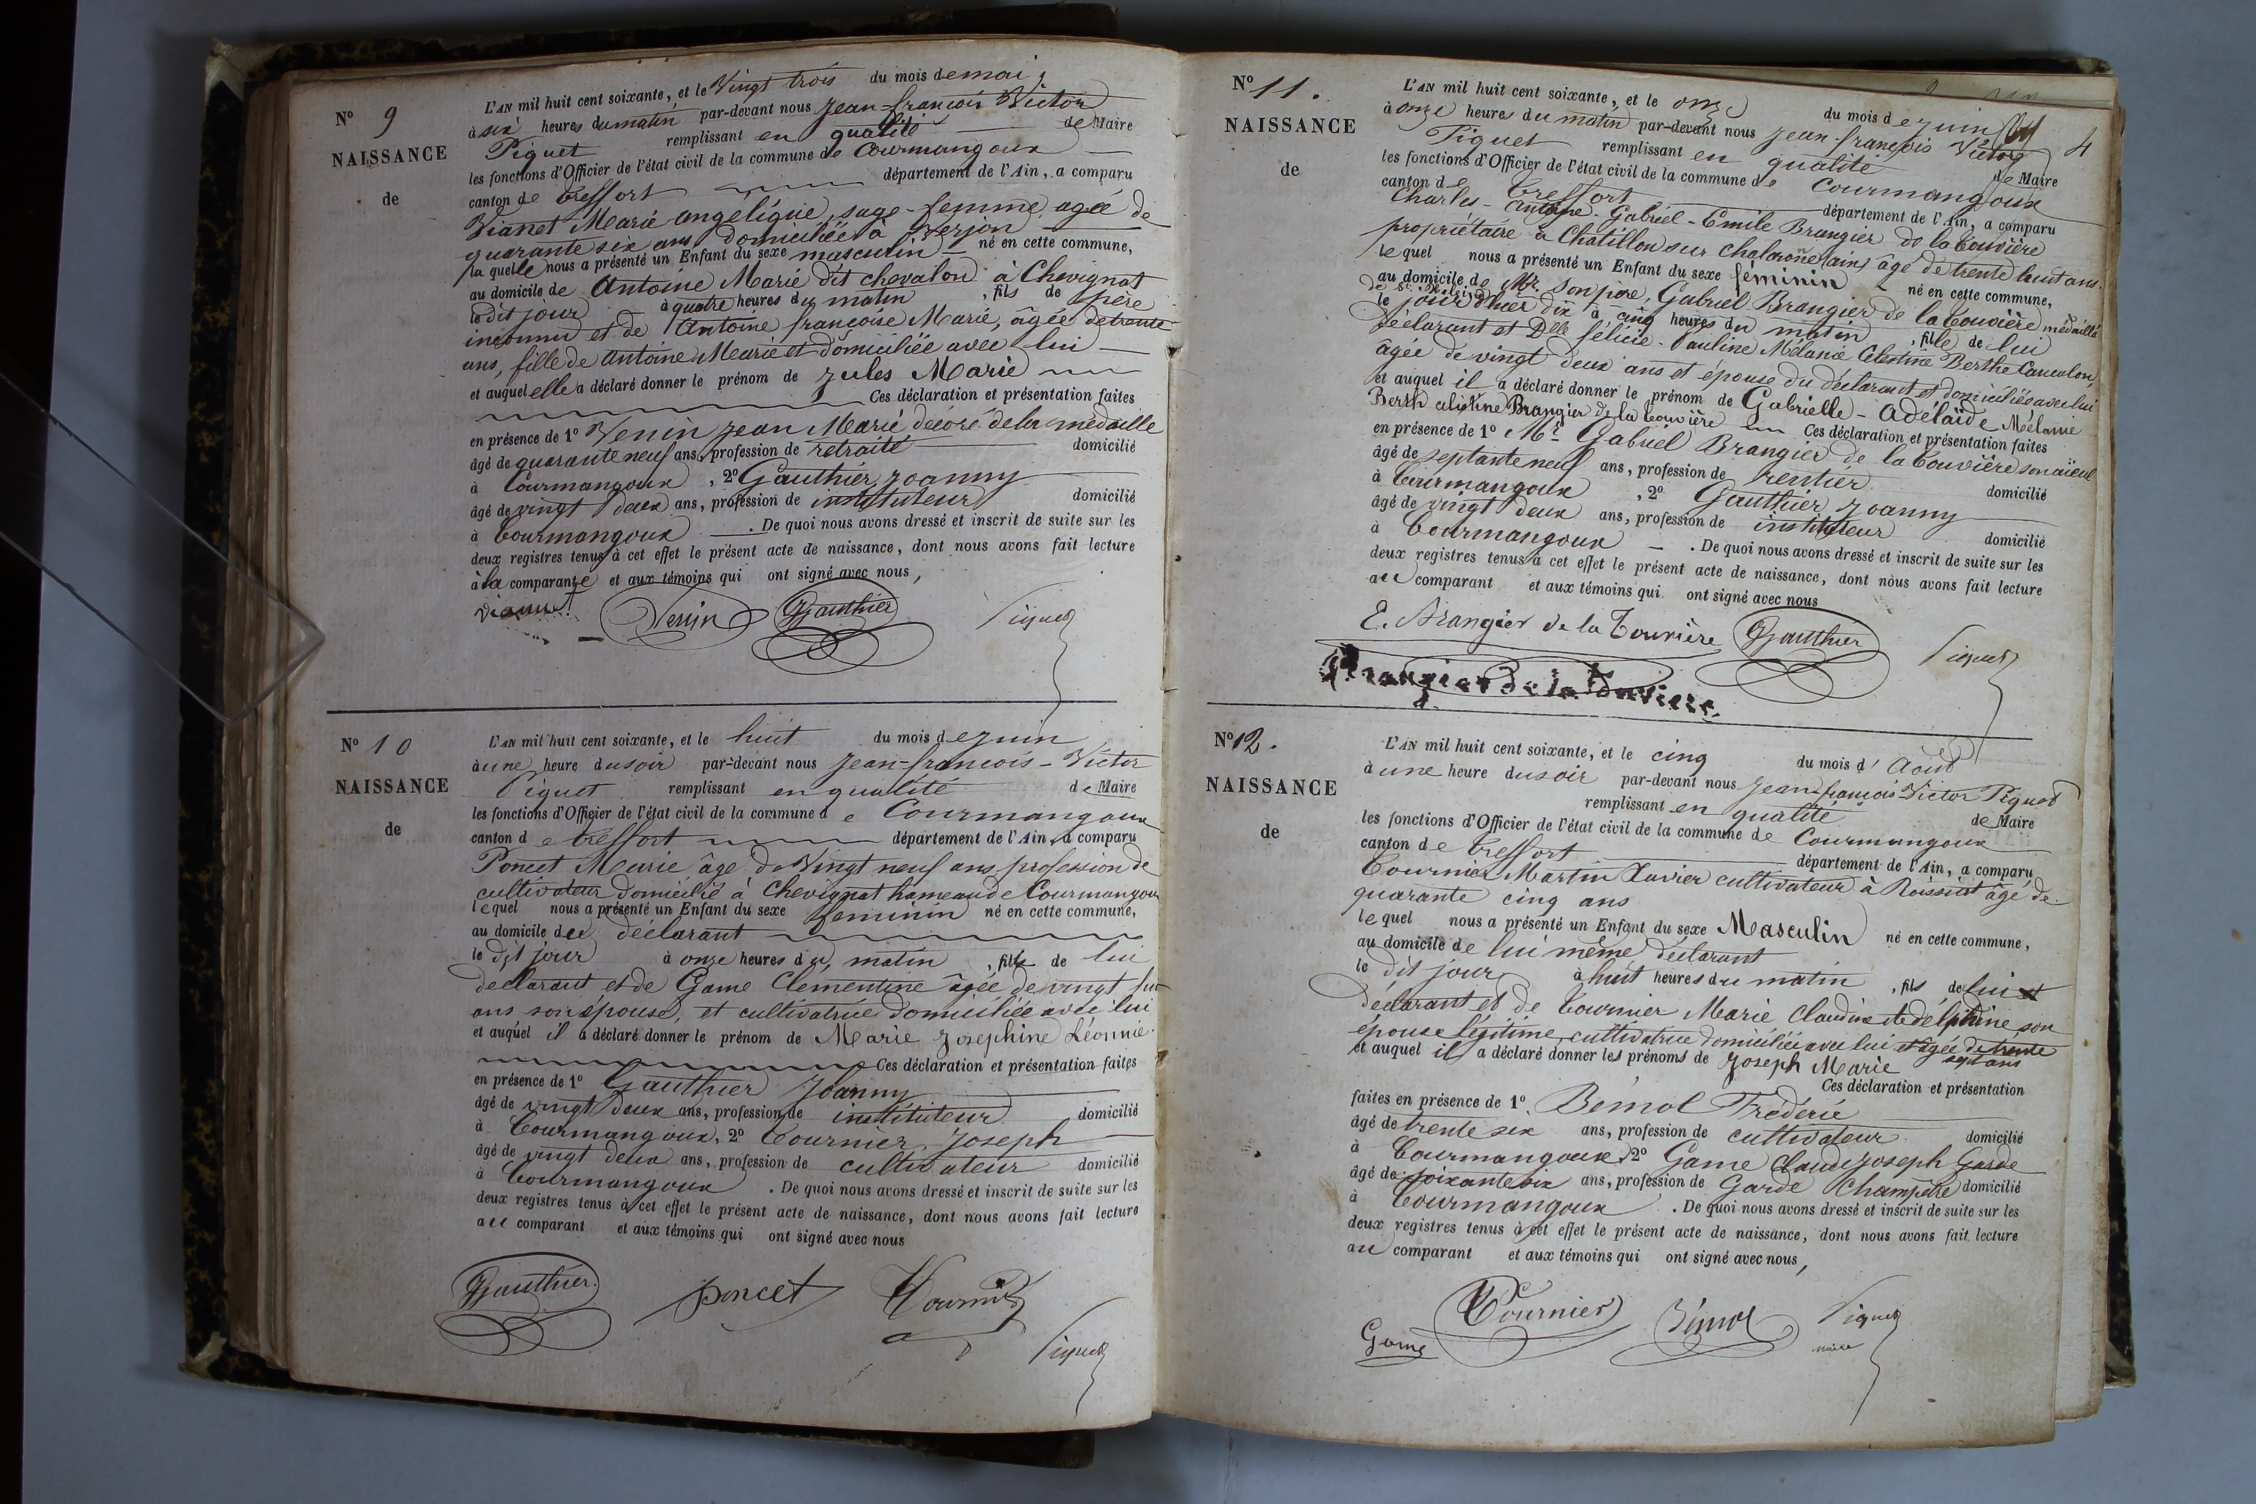 N° 9
NAISSANCE
de
L'AN mil huit cent soixante, et le Vingt trois du mois de mai
à six heures du matin par-devant nous Jean-françois Victor
Piquet remplissant en qualité de Maire
les fonctions d'Officier de l'état civil de la commune de Courmangoux
canton de Treffort département de l'Ain, a comparu
Vianet Marie angélique, sage-femme, agée de
quarante six ans domiciliée à Verjon
la quelle nous a présenté un Enfant du sexe masculin né en cette commune,
au domicile de Antoine Marie dit chevalon à Chevignat
le dit jour à quatre heures du matin, fils de père
inconnu et de Antoine françoise Marie, âgée de trente
ans, fille de Antoine Marie et domiciliée avec lui
et auquel elle a déclaré donner le prénom de Jules Marie
Ces déclaration et présentation faites
en présence de 1° Venin Jean Marie décoré de la médaille
âgé de quarante neuf ans, profession de retraité domicilié
à Courmangoux, 2° Gauthier, Joanny
âgé de vingt deux ans, profession de instituteur domicilié
à Courmangoux. De quoi nous avons dressé et inscrit de suite sur les
deux registres tenus à cet effet le présent acte de naissance, dont nous avons fait lecture
à la comparante et aux témoins qui ont signé avec nous,
Venin Gauthier Piquet
N° 10
NAISSANCE
de
L'AN mil huit cent soixante, et le huit du mois de Juin
à une heure du soir par-devant nous Jean-françois-Victor
Piquet remplissant en qualité de Maire
les fonctions d'Officier de l'état civil de la commune de Courmangoux
canton de Treffort département de l'Ain, a comparu
Poncet Marie âgé de Vingt neuf ans profession de
cultivateur domicilié à Chevignat hameau de Courmangoux
lequel nous a présenté un Enfant du sexe féminin né en cette commune,
au domicile du déclarant
le dit jour à onze heures du matin, fille de lui
déclarant et de Game Clementine âgée de vingt
ans son épouse, et cultivatrice domiciliée avec lui
et auquel il a déclaré donner le prénom de Marie Josephine Léonnie
Ces déclaration et présentation faites
en présence de 1° Gauthier Joanny
âgé de vingt deux ans, profession de instituteur domicilié
à Courmangoux, 2° Tournier, Joseph
âgé de vingt deux ans, profession de cultivateur domicilié
à Courmangoux. De quoi nous avons dressé et inscrit de suite sur les
deux registres tenus à cet effet le présent acte de naissance, dont nous avons fait lecture
au comparant et aux témoins qui ont signé avec nous
Gauthier Poncet Tournier
Piquet
4
N° 11.
NAISSANCE
de
L'AN mil huit cent soixante, et le onze du mois de juin
à onze heures du matin par-devant nous Jean-françois Victor
Piquet remplissant en qualité de Maire
les fonctions d'Officier de l'état civil de la commune de Courmangoux
canton de Treffort département de l'Ain, a comparu
Charles-Antoine-Gabriel-Emile Brangier de la Touvière
propriétaire à Chatillon sur chalaronne (ain) âgé de trente huit ans
lequel nous a présenté un Enfant du sexe féminin né en cette commune,
au domicile de Mr. son père, Gabriel Brangier de la Touvière médaillé
de Ste Hélène
le jour d'hier dix à cinq heures du matin, fille de lui
déclarant et Dlle félicie-Pauline Mélanie Celestine Berthe
âgée de vingt deux ans et épouse du déclarant et domiciliée avec lui
et auquel il a déclaré donner le prénom de Gabrielle-Adélaïde Mélanie
Brangier de la Touvière Ces déclaration et présentation faites
en présence de 1° Mr Gabriel Brangier de la Touvière son aïeul
âgé de septante neuf ans, profession de rentier domicilié
à Courmangoux, 2° Gauthier Joanny
âgé de vingt deux ans, profession de instituteur domicilié
à Courmangoux. De quoi nous avons dressé et inscrit de suite sur les
deux registres tenus à cet effet le présent acte de naissance, dont nous avons fait lecture
au comparant et aux témoins qui ont signé avec nous
E. Brangier de la Touvière Gauthier Piquet
Brangier de la Touviere
N° 12.
NAISSANCE
de
L'AN mil huit cent soixante, et le cinq du mois d'Août
à une heure du soir par-devant nous Jean-françois-Victor Piquet
remplissant en qualité de Maire
les fonctions d'Officier de l'état civil de la commune de Courmangoux
canton de Treffort département de l'Ain, a comparu
Tournier Martin Xavier cultivateur à Roissiat âgé de
quarante cinq ans
lequel nous a présenté un Enfant du sexe Masculin né en cette commune,
au domicile de lui même déclarant
le dit jour à huit heures du matin, fils de lui
déclarant et de Tournier Marie Claudine delphine son
épouse légitime, cultivatrice domiciliée avec lui et âgée de trente
sept ans
et auquel il a déclaré donner les prénoms de Joseph Marie
Ces déclaration et présentation
faites en présence de 1° Bémol Frédéric
âgé de trente six ans, profession de cultivateur domicilié
à Courmangoux 2° Game Claude Joseph Garde
âgé de soixante six ans, profession de Garde Champêtre domicilié
à Courmangoux. De quoi nous avons dressé et inscrit de suite sur les
deux registres tenus à cet effet le présent acte de naissance, dont nous avons fait lecture
au comparant et aux témoins qui ont signé avec nous,
Game Tournier Bémol Piquet
maire